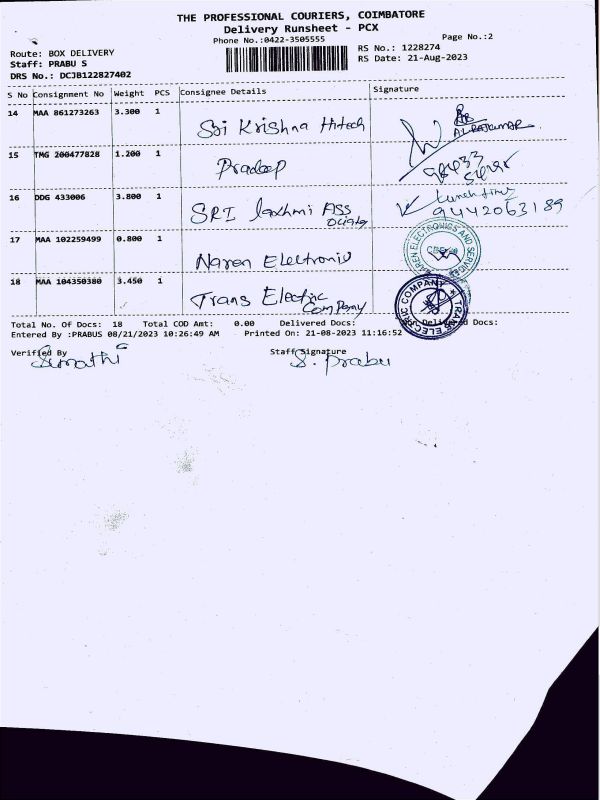 THE PROFESSIONAL COURIERS, COIMBATORE
Delivery Runsheet - PCX
Phone No.:0422-3505555
Page No.:2
Route: BOX DELIVERY
RS No.: 1228274
Staff: PRABU S
RS Date: 21-Aug-2023
DRS No.: DCJB122827402
S No Consignment No Weight PCS Consignee Details Signature
14 MAA 861273263 3.300 1 Sri Krishna Hitech
15 TMG 200477828 1.200 1 Pradeep
16 DDG 433006 3.800 1 SRI laxhmi ASS ociates
Lunch time
9442063189
17 MAA 102259499 0.800 1 Naren Electronic
NAREN ELECTRONICS AND SERVICES
18 MAA 104350380 3.450 1 Trans Electric Company
TRANS ELECTRIC COMPANY
Total No. Of Docs: 18 Total COD Amt: 0.00 Delivered Docs: Delivered Docs:
Entered By :PRABUS 08/21/2023 10:26:49 AM Printed On: 21-08-2023 11:16:52
Verified By Staff Signature
Sumathi S. Prabu